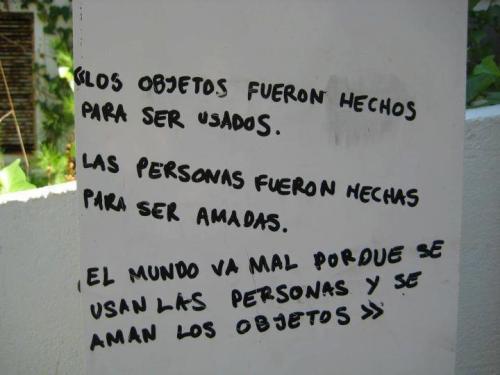 «LOS OBJETOS FUERON HECHOS
PARA SER USADOS.
LAS PERSONAS FUERON HECHAS
PARA SER AMADAS.
EL MUNDO VA MAL PORQUE SE
USAN LAS PERSONAS Y SE
AMAN LOS OBJETOS»